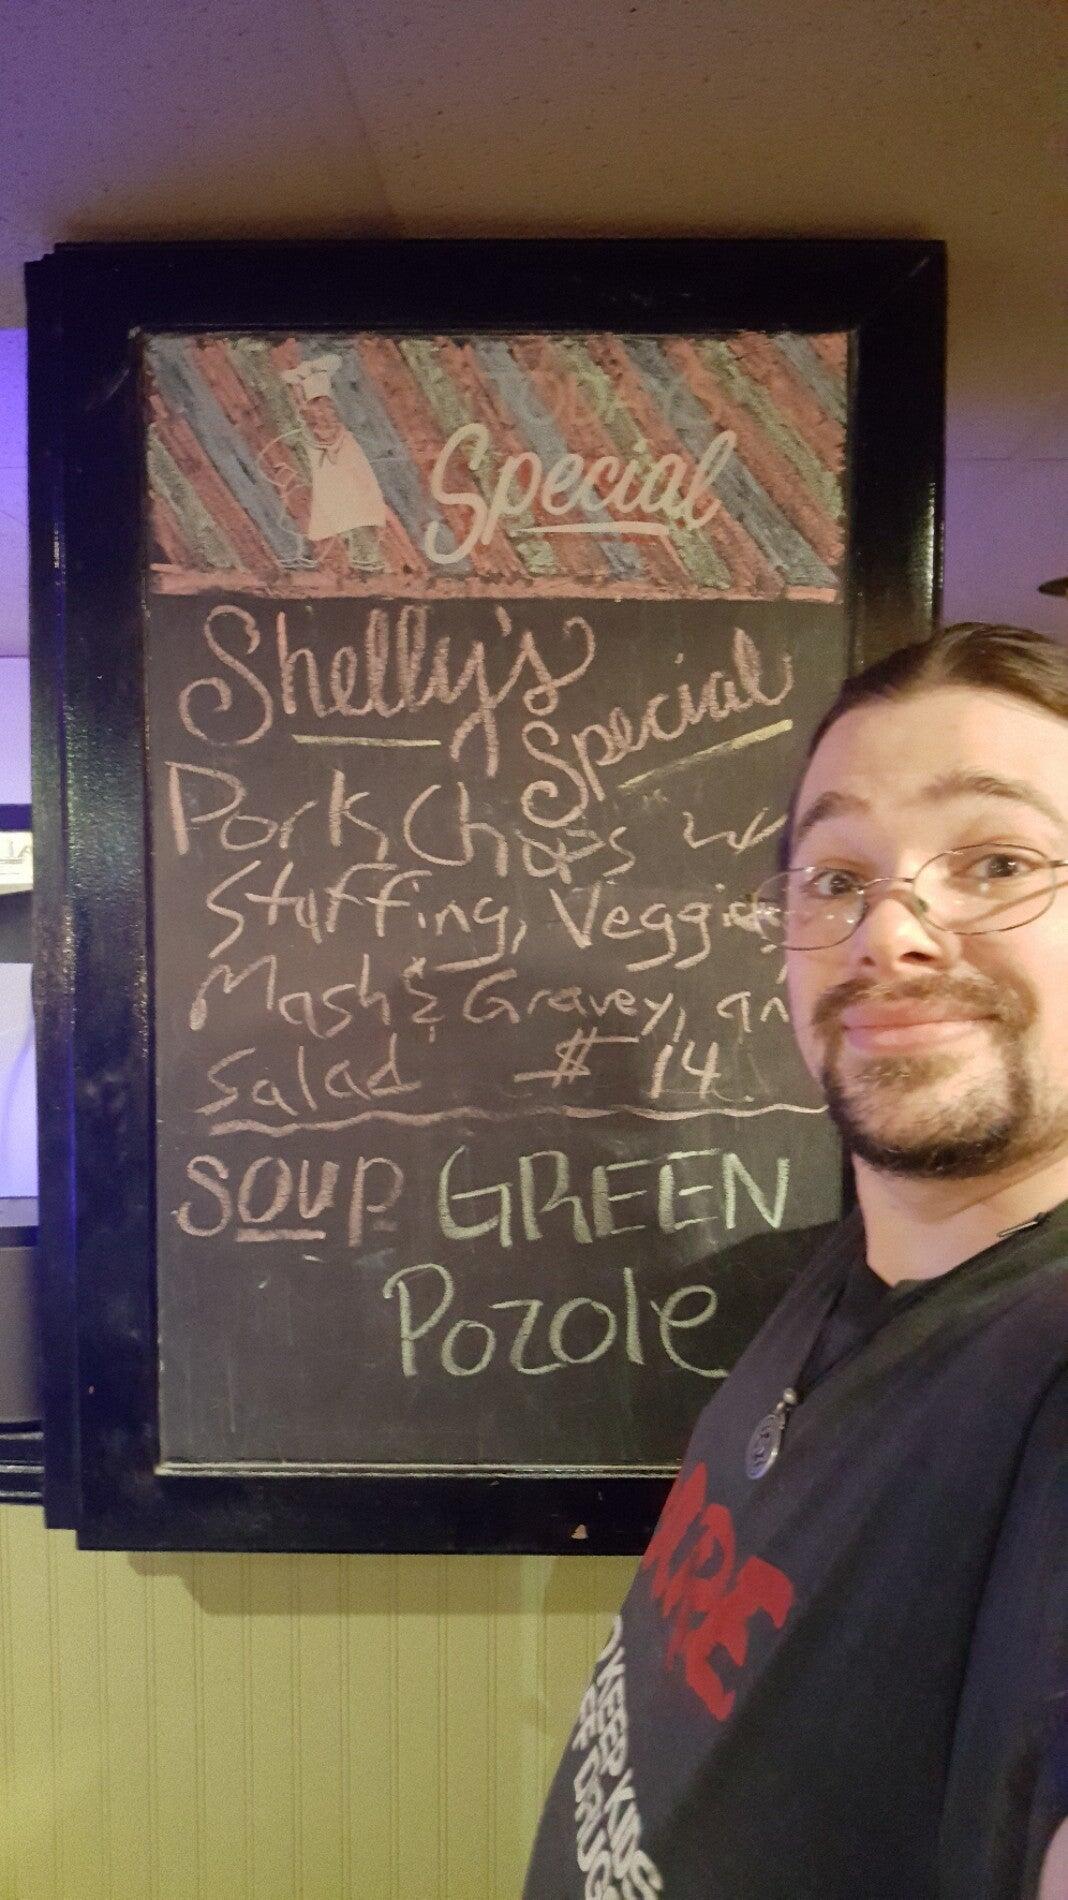 TODAY'S
Special
Shelly's
Special
Pork Chops w/
Stuffing, Veggies
Mash & Gravey, an
Salad $14.
SOUP GREEN
Pozole
KEEP KIDS
OFF DRUGS